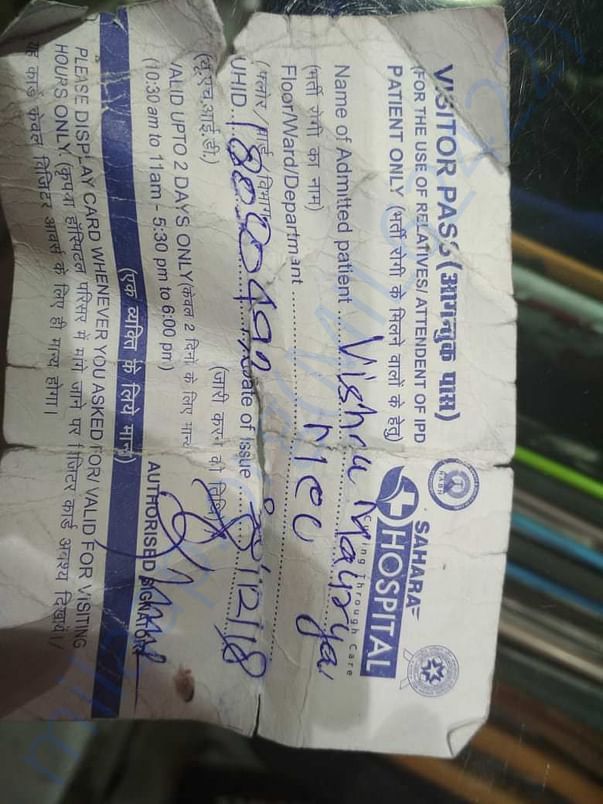 VISITOR PASS (आगन्तुक पास)
(FOR THE USE OF RELATIVES/ ATTENDENT OF IPD
PATIENT ONLY (भर्ती रोगी के मिलने वालों के हेतु)
NABH
SAHARA
HOSPITAL
Curing Through Care
Name of Admitted patient Vishnu Maurya
(भर्ती रोगी का नाम)
Floor/Ward/Department MICU
(फ्लोर / वार्ड / विभाग
UHID. Date of Issue /12/18
(यू.एच.आई.डी.) (जारी करने की तिथि)
VALID UPTO 2 DAYS ONLY (केवल 2 दिनों के लिए मान्य
(10:30 am to 11am - 5:30 pm to 6:00 pm)
AUTHORISED SIGNATORY
(एक व्यक्ति के लिये मान्य)
PLEASE DISPLAY CARD WHENEVER YOU ASKED FOR/ VALID FOR VISITING
HOURS ONLY (कृपया हॉस्पिटल परिसर में मांगे जाने पर विजिटर कार्ड अवश्य दिखायें।/
यह कार्ड केवल विजिटिंग आवर्स के लिए ही मान्य होगा।